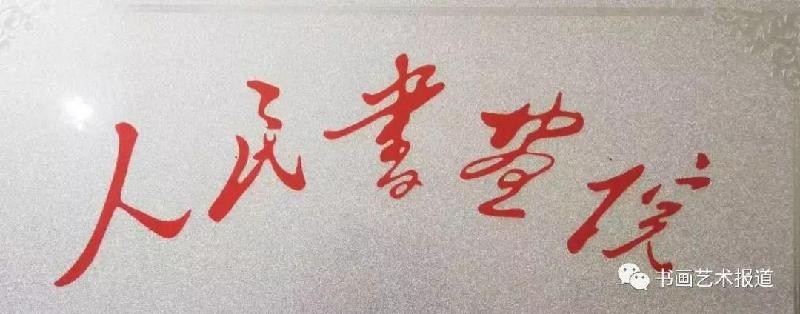 人民書画院
书画艺术报道